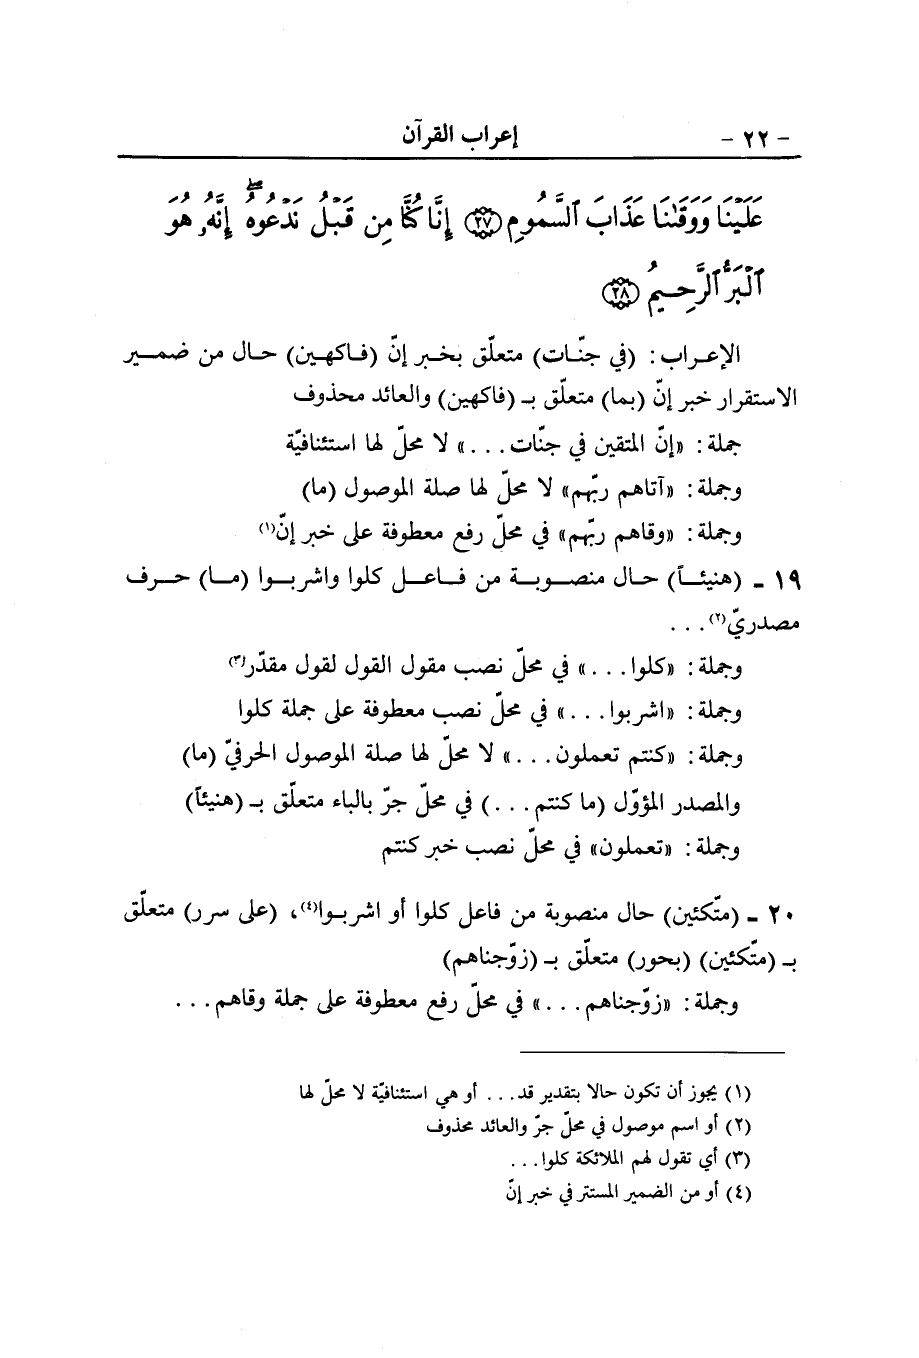 - ٢٢ - إعراب القرآن
عَلَيْنَا وَوَقَىٰنَا عَذَابَ ٱلسَّمُومِ ﴿٢٧﴾ إِنَّا كُنَّا مِن قَبْلُ نَدْعُوهُ ۖ إِنَّهُۥ هُوَ
ٱلْبَرُّ ٱلرَّحِيمُ ﴿٢٨﴾
الإعراب: (في جنّات) متعلّق بخبر إنّ (فاكهين) حال من ضمير
الاستقرار خبر إنّ (بما) متعلّق بـ (فاكهين) والعائد محذوف
جملة: «إنّ المتقين في جنّات...» لا محلّ لها استئنافيّة
وجملة: «آتاهم ربّهم» لا محلّ لها صلة الموصول (ما)
وجملة: «وقاهم ربّهم» في محلّ رفع معطوفة على خبر إنّ(١)
١٩ - (هنيئاً) حال منصوبة من فاعل كلوا واشربوا (ما) حرف
مصدريّ(٢)...
وجملة: «كلوا...» في محلّ نصب مقول القول لقول مقدّر(٣)
وجملة: «اشربوا...» في محلّ نصب معطوفة على جملة كلوا
وجملة: «كنتم تعملون...» لا محلّ لها صلة الموصول الحرفيّ (ما)
والمصدر المؤوّل (ما كنتم...) في محلّ جرّ بالباء متعلّق بـ (هنيئاً)
وجملة: «تعملون» في محلّ نصب خبر كنتم
٢٠ - (متّكئين) حال منصوبة من فاعل كلوا أو اشربوا(٤)، (على سرر) متعلّق
بـ (متّكئين) (بحور) متعلّق بـ (زوّجناهم)
وجملة: «زوّجناهم...» في محلّ رفع معطوفة على جملة وقاهم...
(١) يجوز أن تكون حالا بتقدير قد... أو هي استئنافيّة لا محلّ لها
(٢) أو اسم موصول في محلّ جرّ والعائد محذوف
(٣) أي تقول لهم الملائكة كلوا...
(٤) أو من الضمير المستتر في خبر إنّ